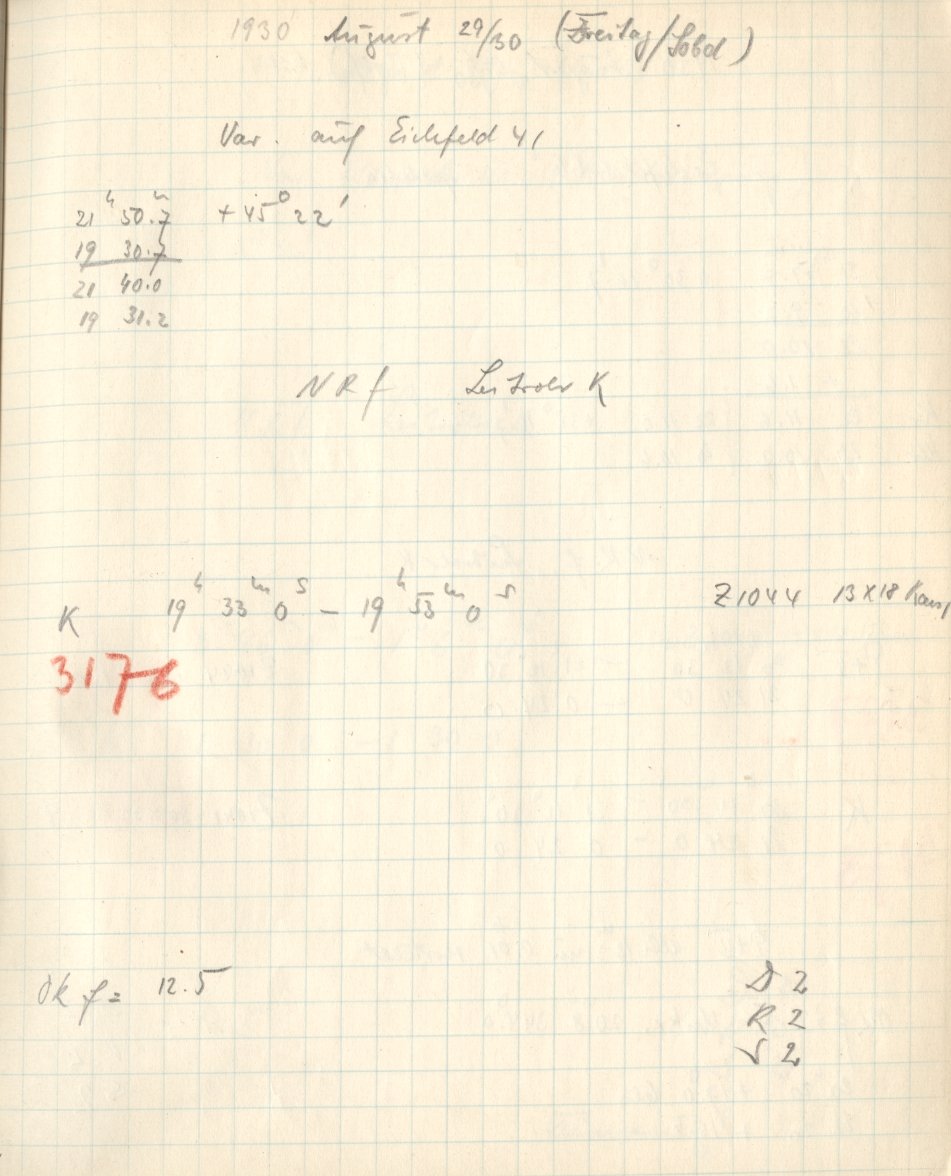 1930 August 29/30 (Freitag/Sobd)
Var. auf Eichfeld 41
21ʰ 50.7ᵐ +45° 22'
19 30.7
21 40.0
19 31.2
NRf K
K 19ʰ 33ᵐ 0ˢ – 19ʰ 53ᵐ 0ˢ Z1044 13x18
3176
f = 12.5
D 2
R 2
S 2